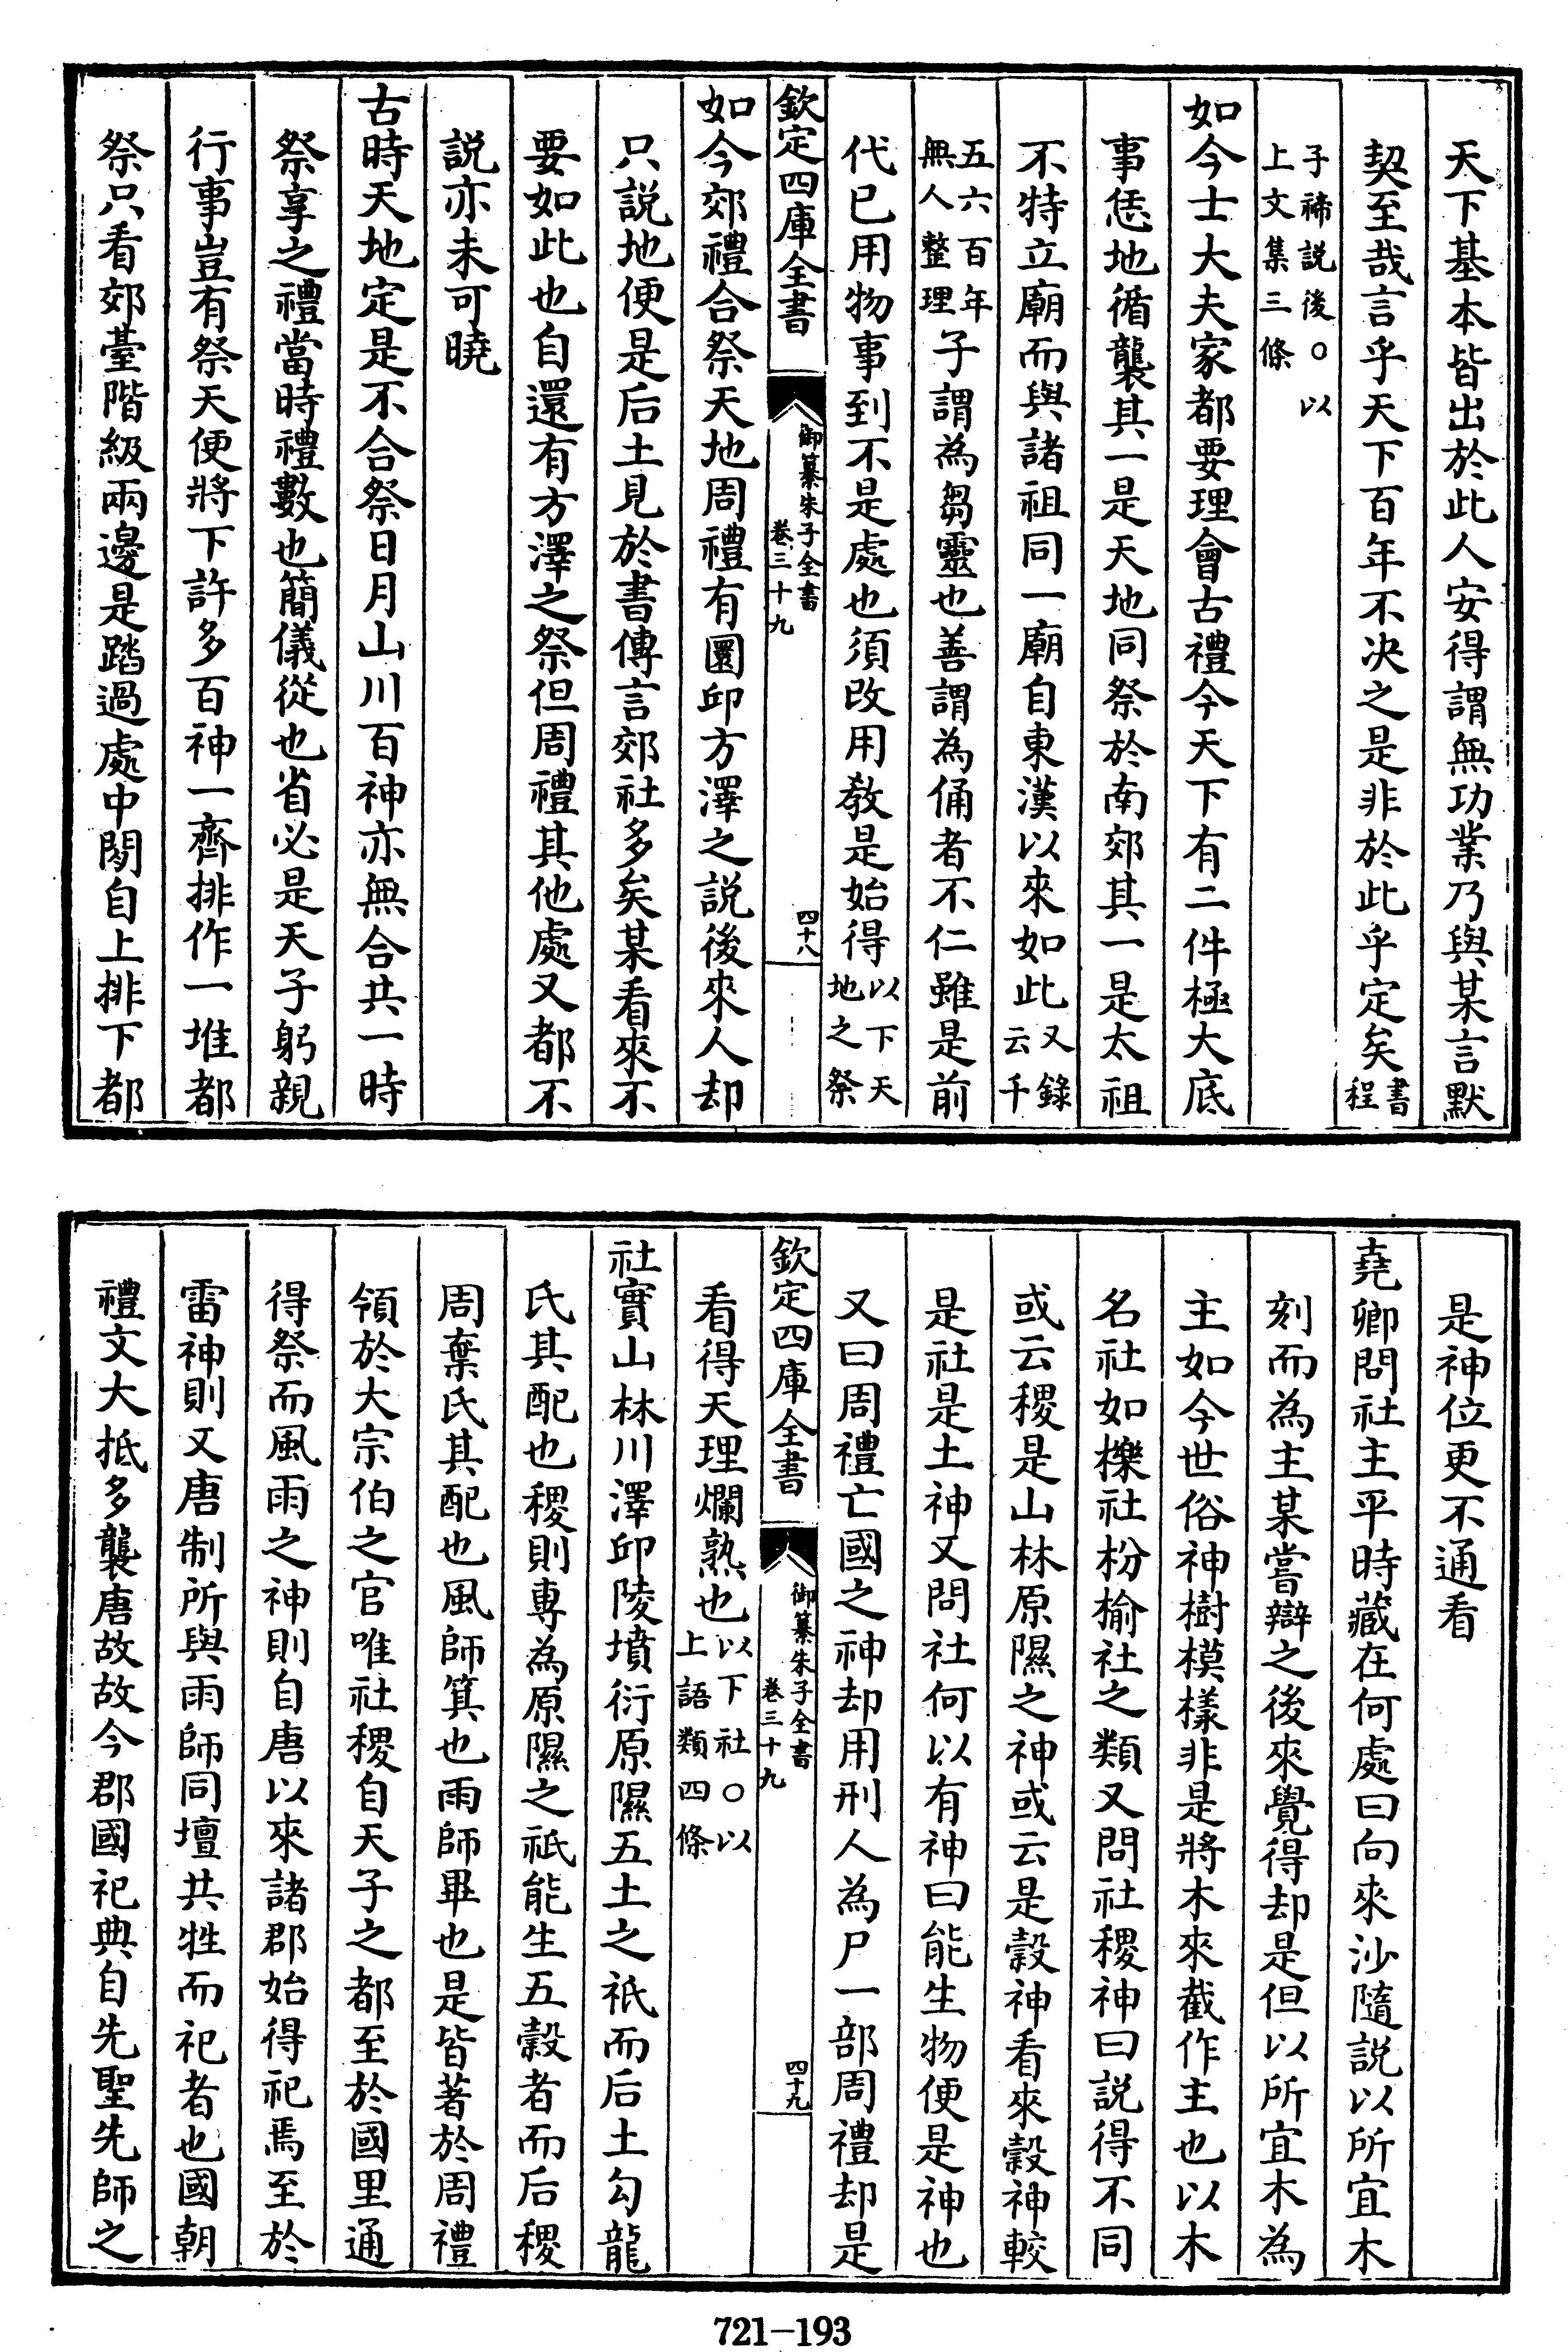 天下基本皆出於此人安得謂無功業乃與某言默
契至哉言乎天下百年不決之是非於此乎定矣書程
子禘説後○以
上文集三條
如今士大夫家都要理會古禮今天下有二件極大底
事恁地循襲其一是天地同祭於南郊其一是太祖
不特立廟而與諸祖同一廟自東漢以來如此又錄云千
五六百年無人整理子謂為芻靈也善謂為俑者不仁雖是前
代已用物事到不是處也須改用教是始得以下天地之祭
欽定四庫全書
御纂朱子全書
卷三十九
四十八
如今郊禮合祭天地周禮有圜邱方澤之説後來人却
只説地便是后土見於書傳言郊社多矣某看來不
要如此也自還有方澤之祭但周禮其他處又都不
説亦未可曉
古時天地定是不合祭日月山川百神亦無合共一時
祭享之禮當時禮數也簡儀從也省必是天子躬親
行事豈有祭天便將下許多百神一齊排作一堆都
祭只看郊臺階級兩邊是踏過處中閒自上排下都
是神位更不通看
堯卿問社主平時藏在何處曰向來沙隨説以所宜木
刻而為主某嘗辯之後來覺得却是但以所宜木為
主如今世俗神樹模樣非是將木來截作主也以木
名社如櫟社枌榆社之類又問社稷神曰説得不同
或云稷是山林原隰之神或云是穀神看來穀神較
是社是土神又問社何以有神曰能生物便是神也
又曰周禮亡國之神却用刑人為尸一部周禮却是
欽定四庫全書
御纂朱子全書
卷三十九
四十九
看得天理爛熟也以下社○以上語類四條
社實山林川澤邱陵墳衍原隰五土之祇而后土勾龍
氏其配也稷則專為原隰之祇能生五穀者而后稷
周棄氏其配也風師箕也雨師畢也是皆著於周禮
領於大宗伯之官唯社稷自天子之都至於國里通
得祭而風雨之神則自唐以來諸郡始得祀焉至於
雷神則又唐制所與雨師同壇共牲而祀者也國朝
禮文大抵多襲唐故故今郡國祀典自先聖先師之
721—193